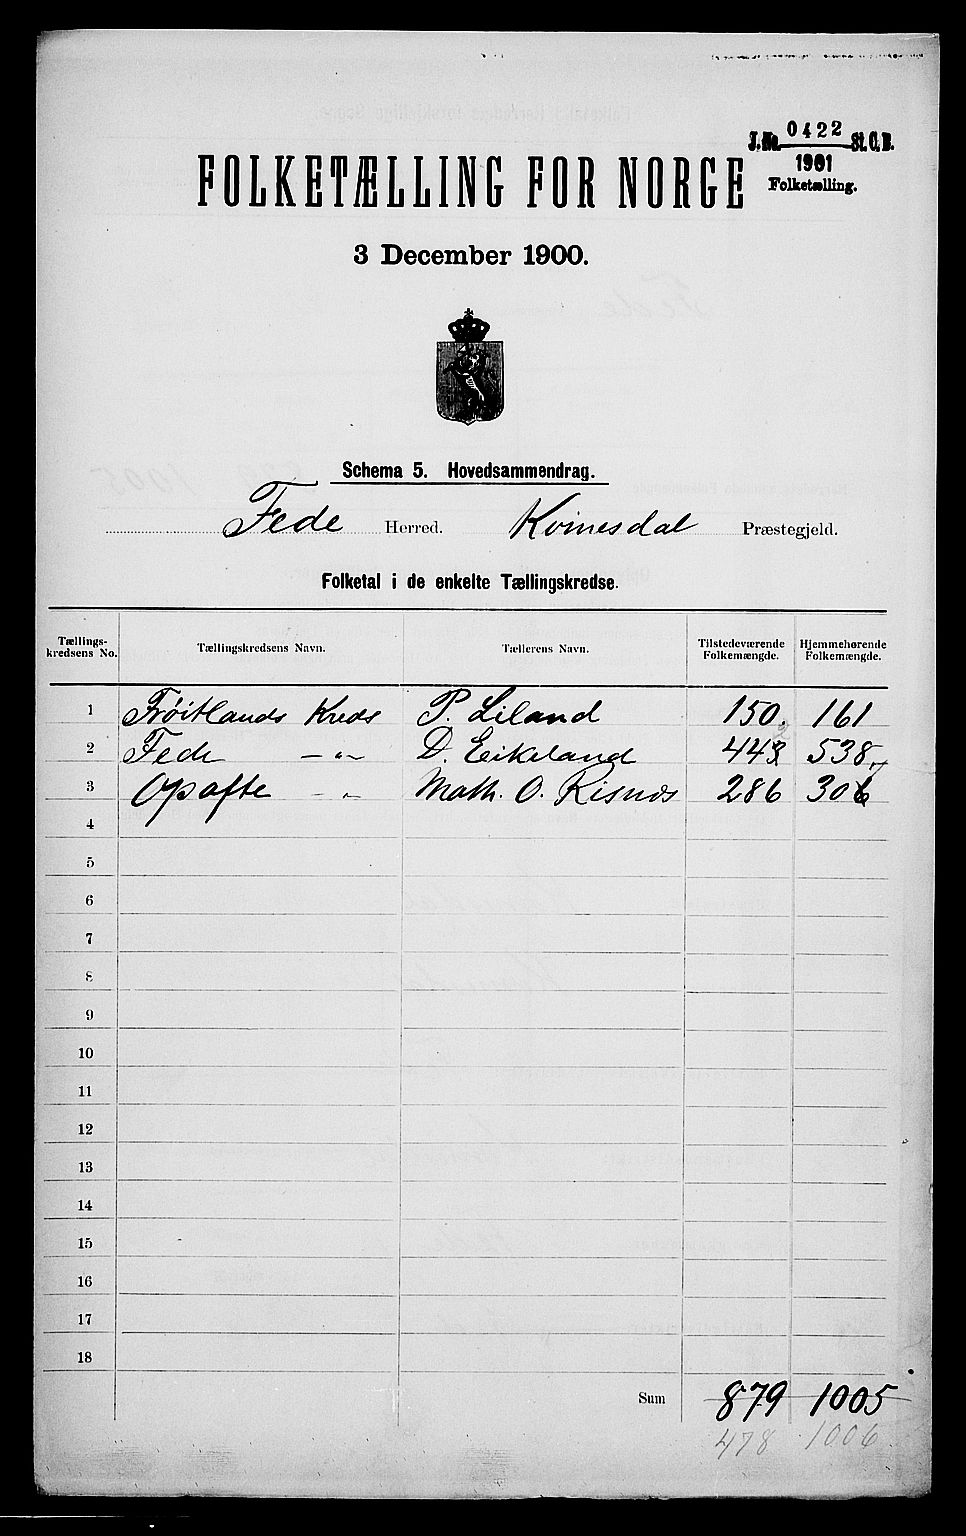 J.No. 0422 St.C.B.
1901
Folketælling.
FOLKETÆLLING FOR NORGE
3 December 1900.
Schema 5. Hovedsammendrag.
Fede Herred. Kvinesdal Præstegjeld.
Folketal i de enkelte Tællingskredse.
Tællings-kredsens No. Tællingskredsens Navn. Tællerens Navn. Tilstedeværende Folkemængde. Hjemmehørende Folkemængde.
1 Frøitlands Kreds P. Liland 150. 161
2 Fede -"- D. Eikeland 443 2 538
3 Opofte -"- Math. O. Risnes 286 306
4
5
6
7
8
9
10
11
12
13
14
15
16
17
18
Sum 879 1005
478 1006